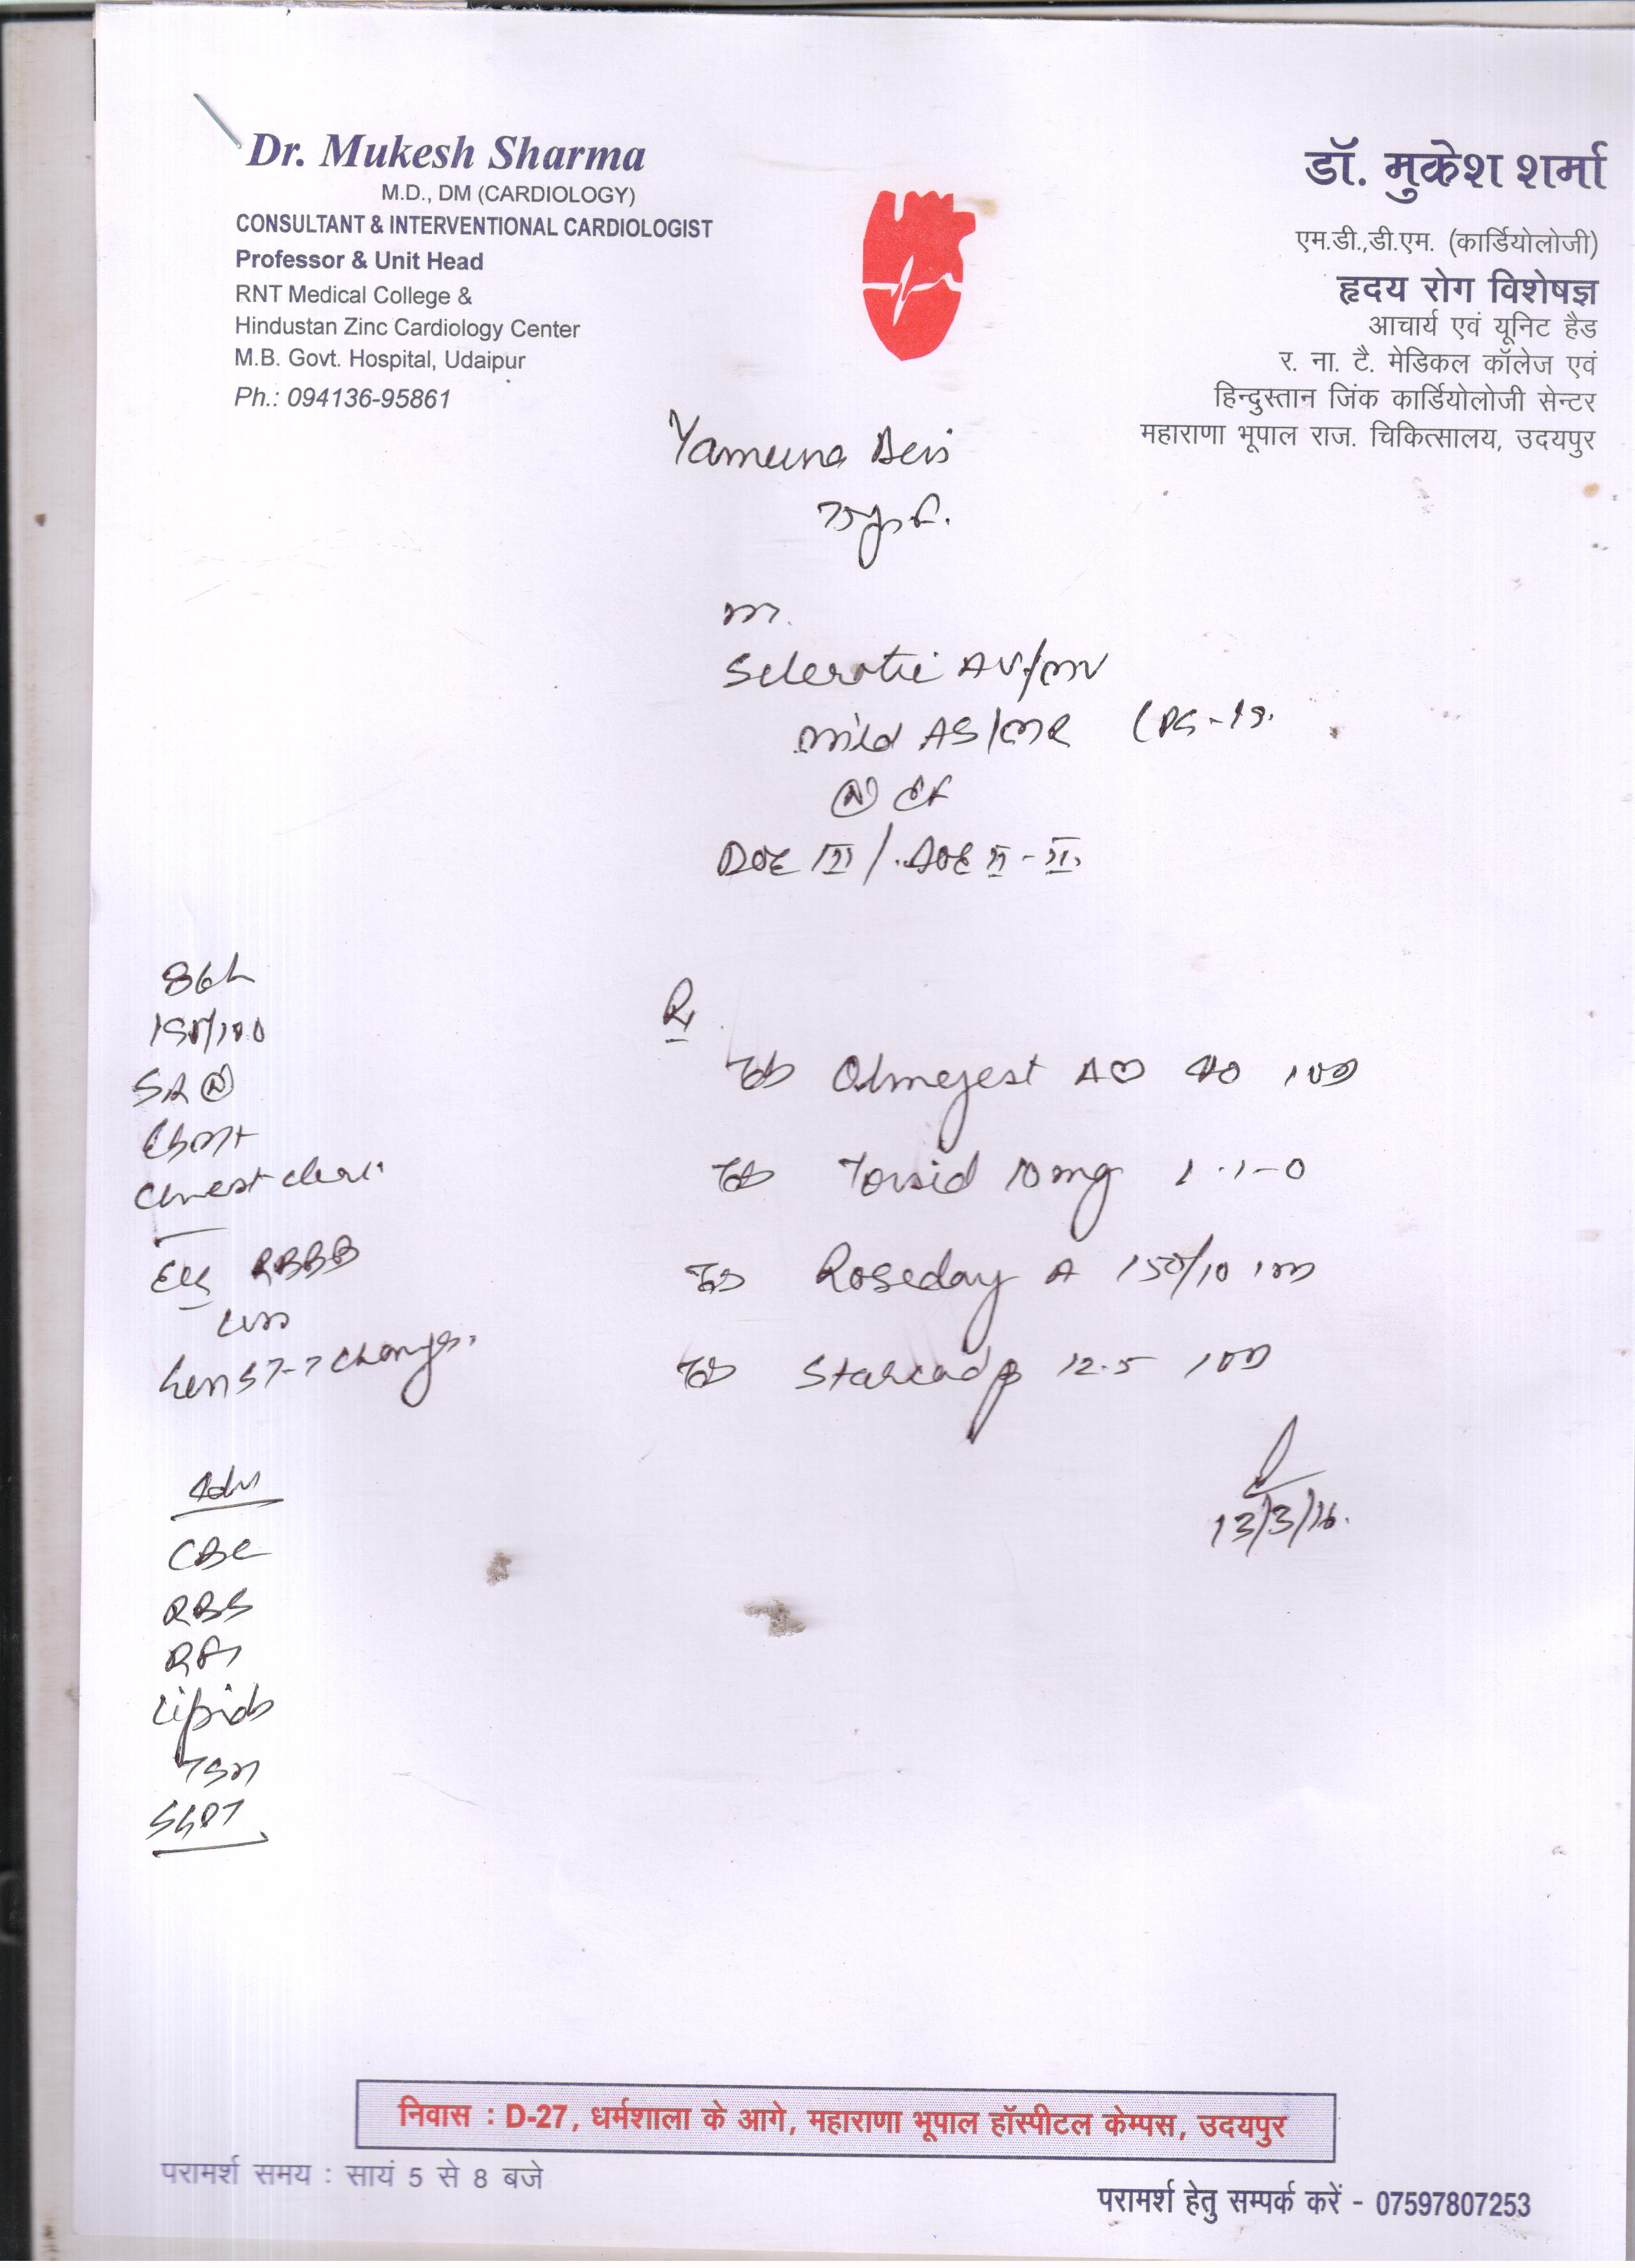 Dr. Mukesh Sharma
M.D., DM (CARDIOLOGY)
CONSULTANT & INTERVENTIONAL CARDIOLOGIST
Professor & Unit Head
RNT Medical College &
Hindustan Zinc Cardiology Center
M.B. Govt. Hospital, Udaipur
Ph.: 094136-95861
डॉ. मुकेश शर्मा
एम.डी.,डी.एम. (कार्डियोलोजी)
हृदय रोग विशेषज्ञ
आचार्य एवं यूनिट हैड
र. ना. टै. मेडिकल कॉलेज एवं
हिन्दुस्तान जिंक कार्डियोलोजी सेन्टर
महाराणा भूपाल राज. चिकित्सालय, उदयपुर
Yamuna Devi
Sclerotic AV/MV
mild AS/MR
(N) EF
DOE III / AOE II-
SR (N)
Chest clear
RBBB
ST-T changes
Adv
CBC
RBS
RFT
Lipids
TSH
SGPT
Rx
Tab Olmegest AM 40 1 OD
Tab Torsid 10mg 1-1-0
Tab Roseday A 150/10 1 OD
Tab 12.5 1 OD
13/3/16.
निवास : D-27, धर्मशाला के आगे, महाराणा भूपाल हॉस्पीटल केम्पस, उदयपुर
परामर्श समय : सायं 5 से 8 बजे
परामर्श हेतु सम्पर्क करें - 07597807253